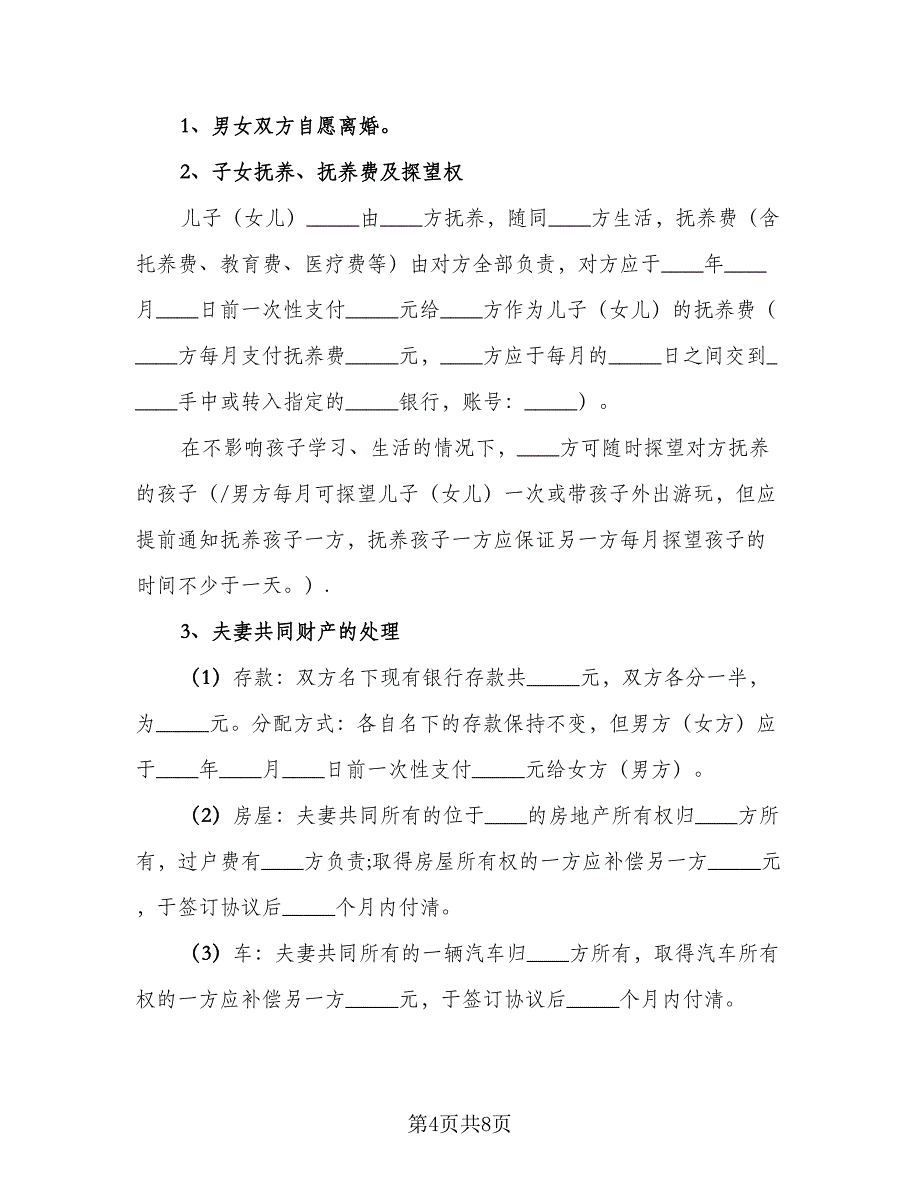 1、男女双方自愿离婚。
2、子女抚养、抚养费及探望权
儿子（女儿）_____由____方抚养，随同____方生活，抚养费（含
托养费、教育费、医疗费等）由对方全部负责，对方应于____年____
月____日前一次性支付_____元给____方作为儿子（女儿）的抚养费（
____方每月支付抚养费_____元，____方应于每月的_____日之间交到_
____手中或转入指定的_____银行，账号：_____）。
在不影响孩子学习、生活的情况下，____方可随时探望对方抚养
的孩子（/男方每月可探望儿子（女儿）一次或带孩子外出游玩，但应
提前通知抚养孩子一方，抚养孩子一方应保证另一方每月探望孩子的
时间不少于一天。）.
3、夫妻共同财产的处理
（1）存款：双方名下现有银行存款共_____元，双方各分一半，
为_____元。分配方式：各自名下的存款保持不变，但男方（女方）应
于____年____月____日前一次性支付_____元给女方（男方）。
（2）房屋：夫妻共同所有的位于____的房地产所有权归____方所
有，过户费有____方负责;取得房屋所有权的一方应补偿另一方_____元
，于签订协议后_____个月内付清。
（3）车：夫妻共同所有的一辆汽车归____方所有，取得汽车所有
权的一方应补偿另一方_____元，于签订协议后_____个月内付清。
第4页共8页